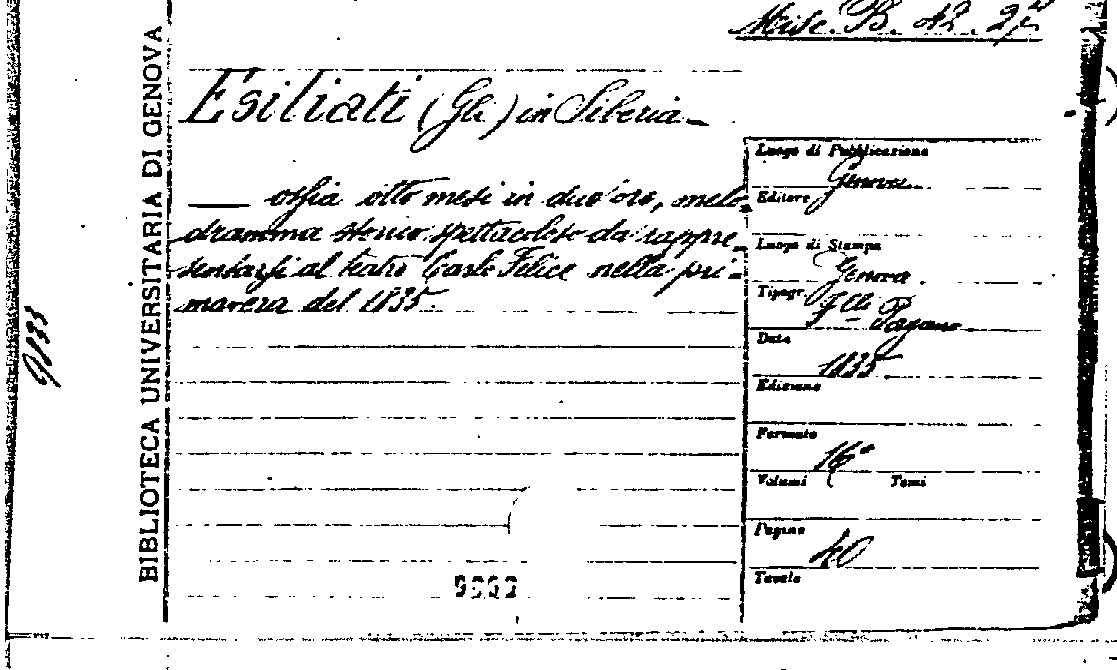 Misc. B. 42. 27
BIBLIOTECA UNIVERSITARIA DI GENOVA
Esiliati (Gli) in Siberia
ossia otto mesi in due ore, melo
dramma storico spettacoloso da rappre
sentarsi al teatro Carlo Felice nella pri=
mavera del 1835.
Luogo di Pubblicazione
Genova
Editore
Luogo di Stampa
Genova
Tipogr.
Flli Pagano
Data
1835
Edizione
Formato
16°
Volumi Tomi
Pagine
40
Tavole